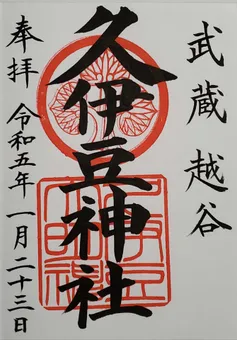 武蔵越谷
久伊豆神社
奉拝
令和五年一月二十三日